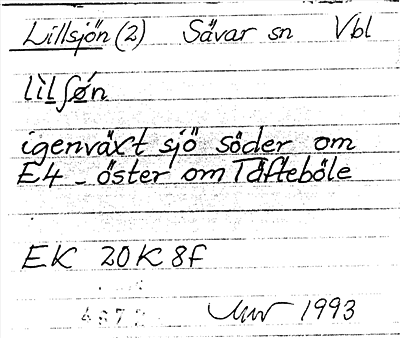 Lillsjön (2) Sävar sn Vbl
lìlʃǿn
igenväxt sjö söder om
E4 - öster om Täfteböle
EK 20K 8f
1993